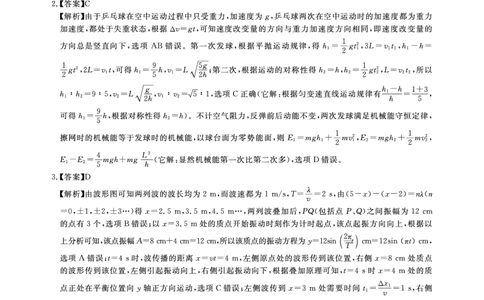 2.【答案】C
【解析】由于乒乓球在空中运动过程中只受重力,加速度为 g,乒乓球两次在空中运动时的加速度都为重力
加速度,都处于失重状态,根据 Δv=gt,可知速度改变量的方向与重力加速度方向相同,即速度改变量的
方向总是竖直向下,选项 AB 错误。第一次发球,根据平抛运动规律,得 h₁=1/2gt₁²,3L=v₁t₁,h₁-h=
1/2gt²,2L=v₁t,可得 h₁=9/5h,v₁=L√(5g/2h);第二次,根据运动的对称性得 h₂=h,h₂=1/2gt₂²,L=v₂t₂,所以
h₁:h₂=9:5,v₂=L√(g/2h),v₁:v₂=√5:1,选项 C 正确(它解:根据匀变速直线运动规律有 (h₁-h)/h=(1+3)/5,
可得 h₁=9/5h,根据对称性得 h₂=h)。不计空气阻力,反弹前后动能不变,两次发球满足机械能守恒定律,
擦网时的机械能等于发球时的机械能,以球台面为零势能面,则 E₁=mgh₁+1/2mv₁²,E₂=mgh₂+1/2mv₂²,
E₁-E₂=4/5mgh+mg L²/h(它解:显然机械能第一次比第二次多),选项 D 错误。
3.【答案】D
【解析】由波形图可知两列波的波长均为 2 m,而波速都为 1 m/s,T=λ/v=2 s,由(5-x)-(x-2)=nλ(n
=0,±1,±2,±3…)得 x=2.5 m,3.5 m,4.5 m…,两列波叠加后,PQ(包括点 P、Q)之间振幅为 12 cm
的点有 3 个,选项 B 错误;以 x=3.5 m 处的质点开始振动时刻作为计时起点,该点起振方向向上,根据以
上分析可知,该点振幅 A=8 cm+4 cm=12 cm,所以该质点的振动方程为 y=12sin(2π/T t) cm=12sin (πt) cm,
选项 A 错误;t=4 s 时,波传播的距离 x=vt=4 m,左侧原点处的波形传到该位置,右侧 x=8 cm 处质点
的波形传到该位置,左侧引起振动向上,右侧引起振动向下,根据叠加原理可知,t=4 s 时 x=4 m 处的质
点正处在平衡位置向 y 轴正方向运动,选项 C 错误;左侧波传到 x=3 m 处需要时间 t₁=Δx₁/v=1 s,右侧